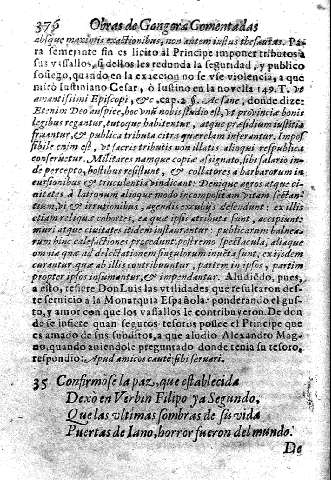 376 Obras de Gongora Comentadas
absque maximis exactionibus, non autem iustus thesautas. Pa-
ra semejante fin es licito al Principe imponer tributos a
sus vassallos, si dellos les redunda la seguridad, y publico
sosiego, quando en la exaccion no se vse violencia, a que
miró Iustiniano Cesar, ò Iustino en la novella 149. T. de
amantissimi Episcopi, &c, cap. 2. §. Ac sane, donde dize:
Etenim Deo auspice, hoc vnū nobis studio est, vt provincia bonis
legibus regantur, tutoque habitentur, atque præsidium iustitia
fruantur, & publica tributa citra querelam inferantur. Impos-
sibile enim est, vt sacris tributis non illatis alioqui respublica
conservetur. Militares namque copiæ assignato, sibi salario in-
de percepto, hostibus resistunt, & collatores à barbarorum in-
cursionibus & truculentia vindicant: Denique agros atque ci-
vitates à latronum alioque modo incompositam vitam sectan-
tium, vi & irruptionibus, agendis excubijs defendunt: ex illis
etiam reliquæ cohortes, ea quæ ipsis atributa sunt, accipiunt:
muri atque civitates eiusdem instaurantur: publicarum balnea-
rum hinc calefactiones procedunt, postremo spectacula, aliaque
omnia quæ ad delectationem singulorum inventa sunt, ex ijsdem
curantur quæ ab illis contribuuntur, partim in ipsos, partim
propter ipsos insumantur, & impendantur. Aludiendo, pues,
a esto, refiere Don Luis las vtilidades que resultaron des-
te servicio a la Monarquia Española: ponderando el gus-
to, y amor con que los vassallos le contribuyeron. De don
de se infiere quan seguros tesoros possee el Principe que
es amado de sus subditos, a que aludio Alexandro Mag-
no, quando auiendole preguntado donde tenia su tesoro,
respondio: Apud amicos cautè sibi servari.
35 Confirmose la paz, que establecida
Dexò en Verbin Filipo ya Segundo,
Que las vltimas sombras de su vida
Puertas de Iano, horror fueron del mundo.
De